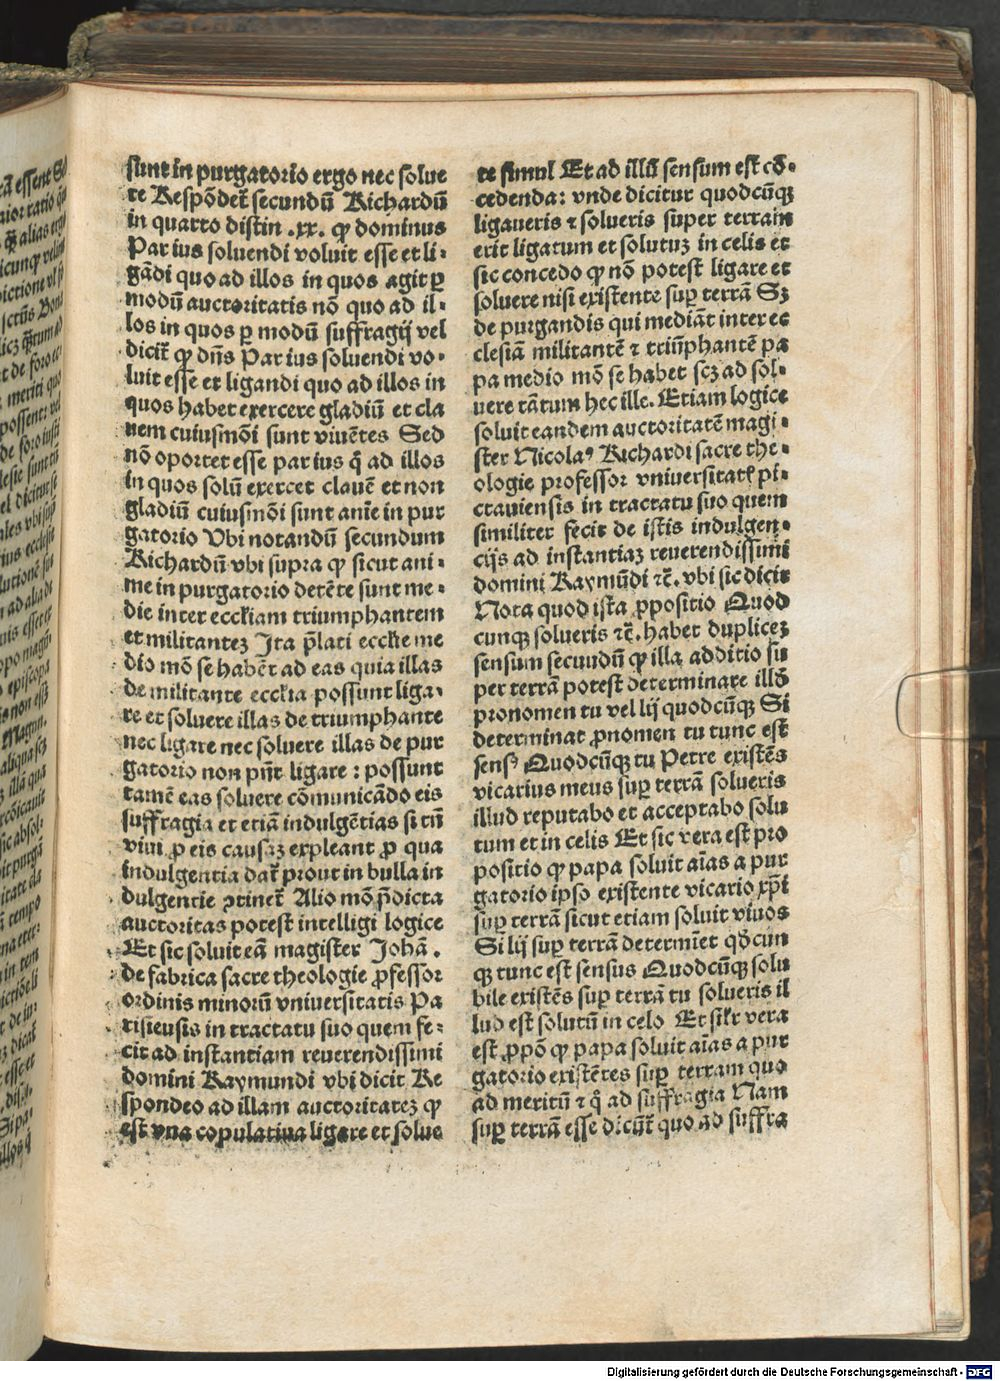 sunt in purgatorio ergo nec solue
re Respōdet̄ secundū Richardū
in quarto distin .xx. ꝙ dominus
Par ius soluendi voluit esse et li⸗
gādi quo ad illos in quos agit ꝑ
modū auctoritatis nō quo ad il⸗
los in quos ꝑ modū suffragij vel
dicit̄ ꝙ dn̄s Par ius soluendi vo⸗
luit esse et ligandi quo ad illos in
quos habet exercere gladiū et cla
uem cuiusmōi sunt viuētes Sed
nō oportet esse par ius q̄ ad illos
in quos solū exercet clauē et non
gladiū cuiusmōi sunt anīe in pur
gatorio Vbi notandū secundum
Richardū vbi supra ꝙ sicut ani⸗
me in purgatorio detēte sunt me⸗
die inter eccłiam triumphantem
et militantez Ita p̄lati eccłie me
dio mō se habēt ad eas quia illas
de militante eccłia possunt liga⸗
re et soluere illas de triumphante
nec ligare nec soluere illas de pur
gatorio non pn̄t ligare : possunt
tamē eas soluere cōmunicādo eis
suffragia et etiā indulgētias si tn̄
viui ꝓ eis causaz expleant ꝓ qua
indulgentia dat̄ prout in bulla in
dulgentie ꝯtinet̄ Alio mō p̄dicta
auctoritas potest intelligi logice
Et sic soluit eā magister Johā.
de fabrica sacre theologie ꝓfessor
ordinis minorū vniuersitatis Pa
risieusis in tractatu suo quem fe⸗
cit ad instantiam reuerendissimi
domini Raymundi vbi dicit Re
spondeo ad illam auctoritatez ꝙ
est vna copulatiua ligare et solue
te simul Et ad illū sensum est cō⸗
cedenda: vnde dicitur quodcūqꝫ
ligaueris ⁊ solueris super terram
erit ligatum et solutuz in celis et
sic concedo ꝙ nō potest ligare et
soluere nisi existente suꝑ terrā Sꝫ
de purgandis qui mediāt inter ec
clesiā militantē ⁊ triūphantē pa
pa medio mō se habet scꝫ ad sol⸗
uere tātum hec ille. Etiam logice
soluit eandem auctoritatē magi⸗
ster Nicolaꝰ Richardi sacre the⸗
ologie professor vniuersitatꝭ pi⸗
ctauiensis in tractatu suo quem
similiter fecit de istis indulgen⸗
cijs ad instantiaz reuerendissimi
domini Raymūdi ⁊c̄. vbi sic dicit
Nota quod ista ꝓpositio Quod
cunqꝫ solueris ⁊c̄. habet duplicez
sensum secundū ꝙ illa additio su
per terrā potest determinare illd̄
pronomen tu vel lij quodcūqꝫ Si
determinat ꝓnomen tu tunc est
sensꝰ Quodcūqꝫ tu Petre existēs
vicarius meus suꝑ terrā solueris
illud reputabo et acceptabo solu
tum et in celis Et sic vera est pro
positio ꝙ papa soluit aīas a pur
gatorio ipso existente vicario xp̄i
suꝑ terrā sicut etiam soluit viuos
Si lij suꝑ terrā determīet qd̄cun
qꝫ tunc est sensus Quodcūqꝫ solu
bile existēs suꝑ terrā tu solueris il
lud est solutū in celo Et siłr vera
est ꝓpō ꝙ papa soluit aīas a pur
gatorio existētes suꝑ terram quo
ad meritū ⁊ q̄ ad suffragia Nam
suꝑ terrā esse dicūt̄ quo ad suffra
Digitalisierung gefördert durch die Deutsche Forschungsgemeinschaft - DFG